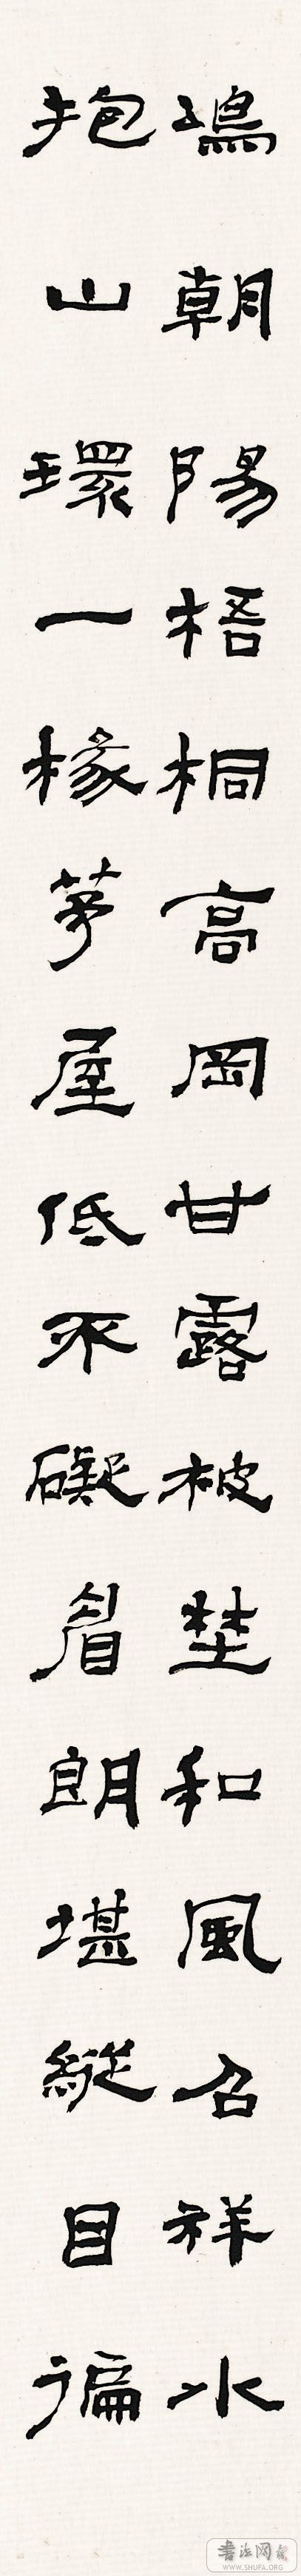 鳴朝陽梧桐高岡甘露被埜和風召祥水
抱山環一椽茅屋低不礙眉朗堪縱目徧
书法网
WWW.SHUFA.ORG